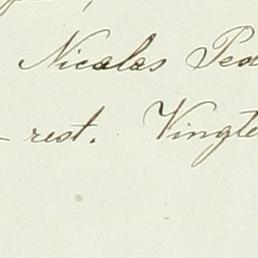 Nicolas Ped
rest. Vingte